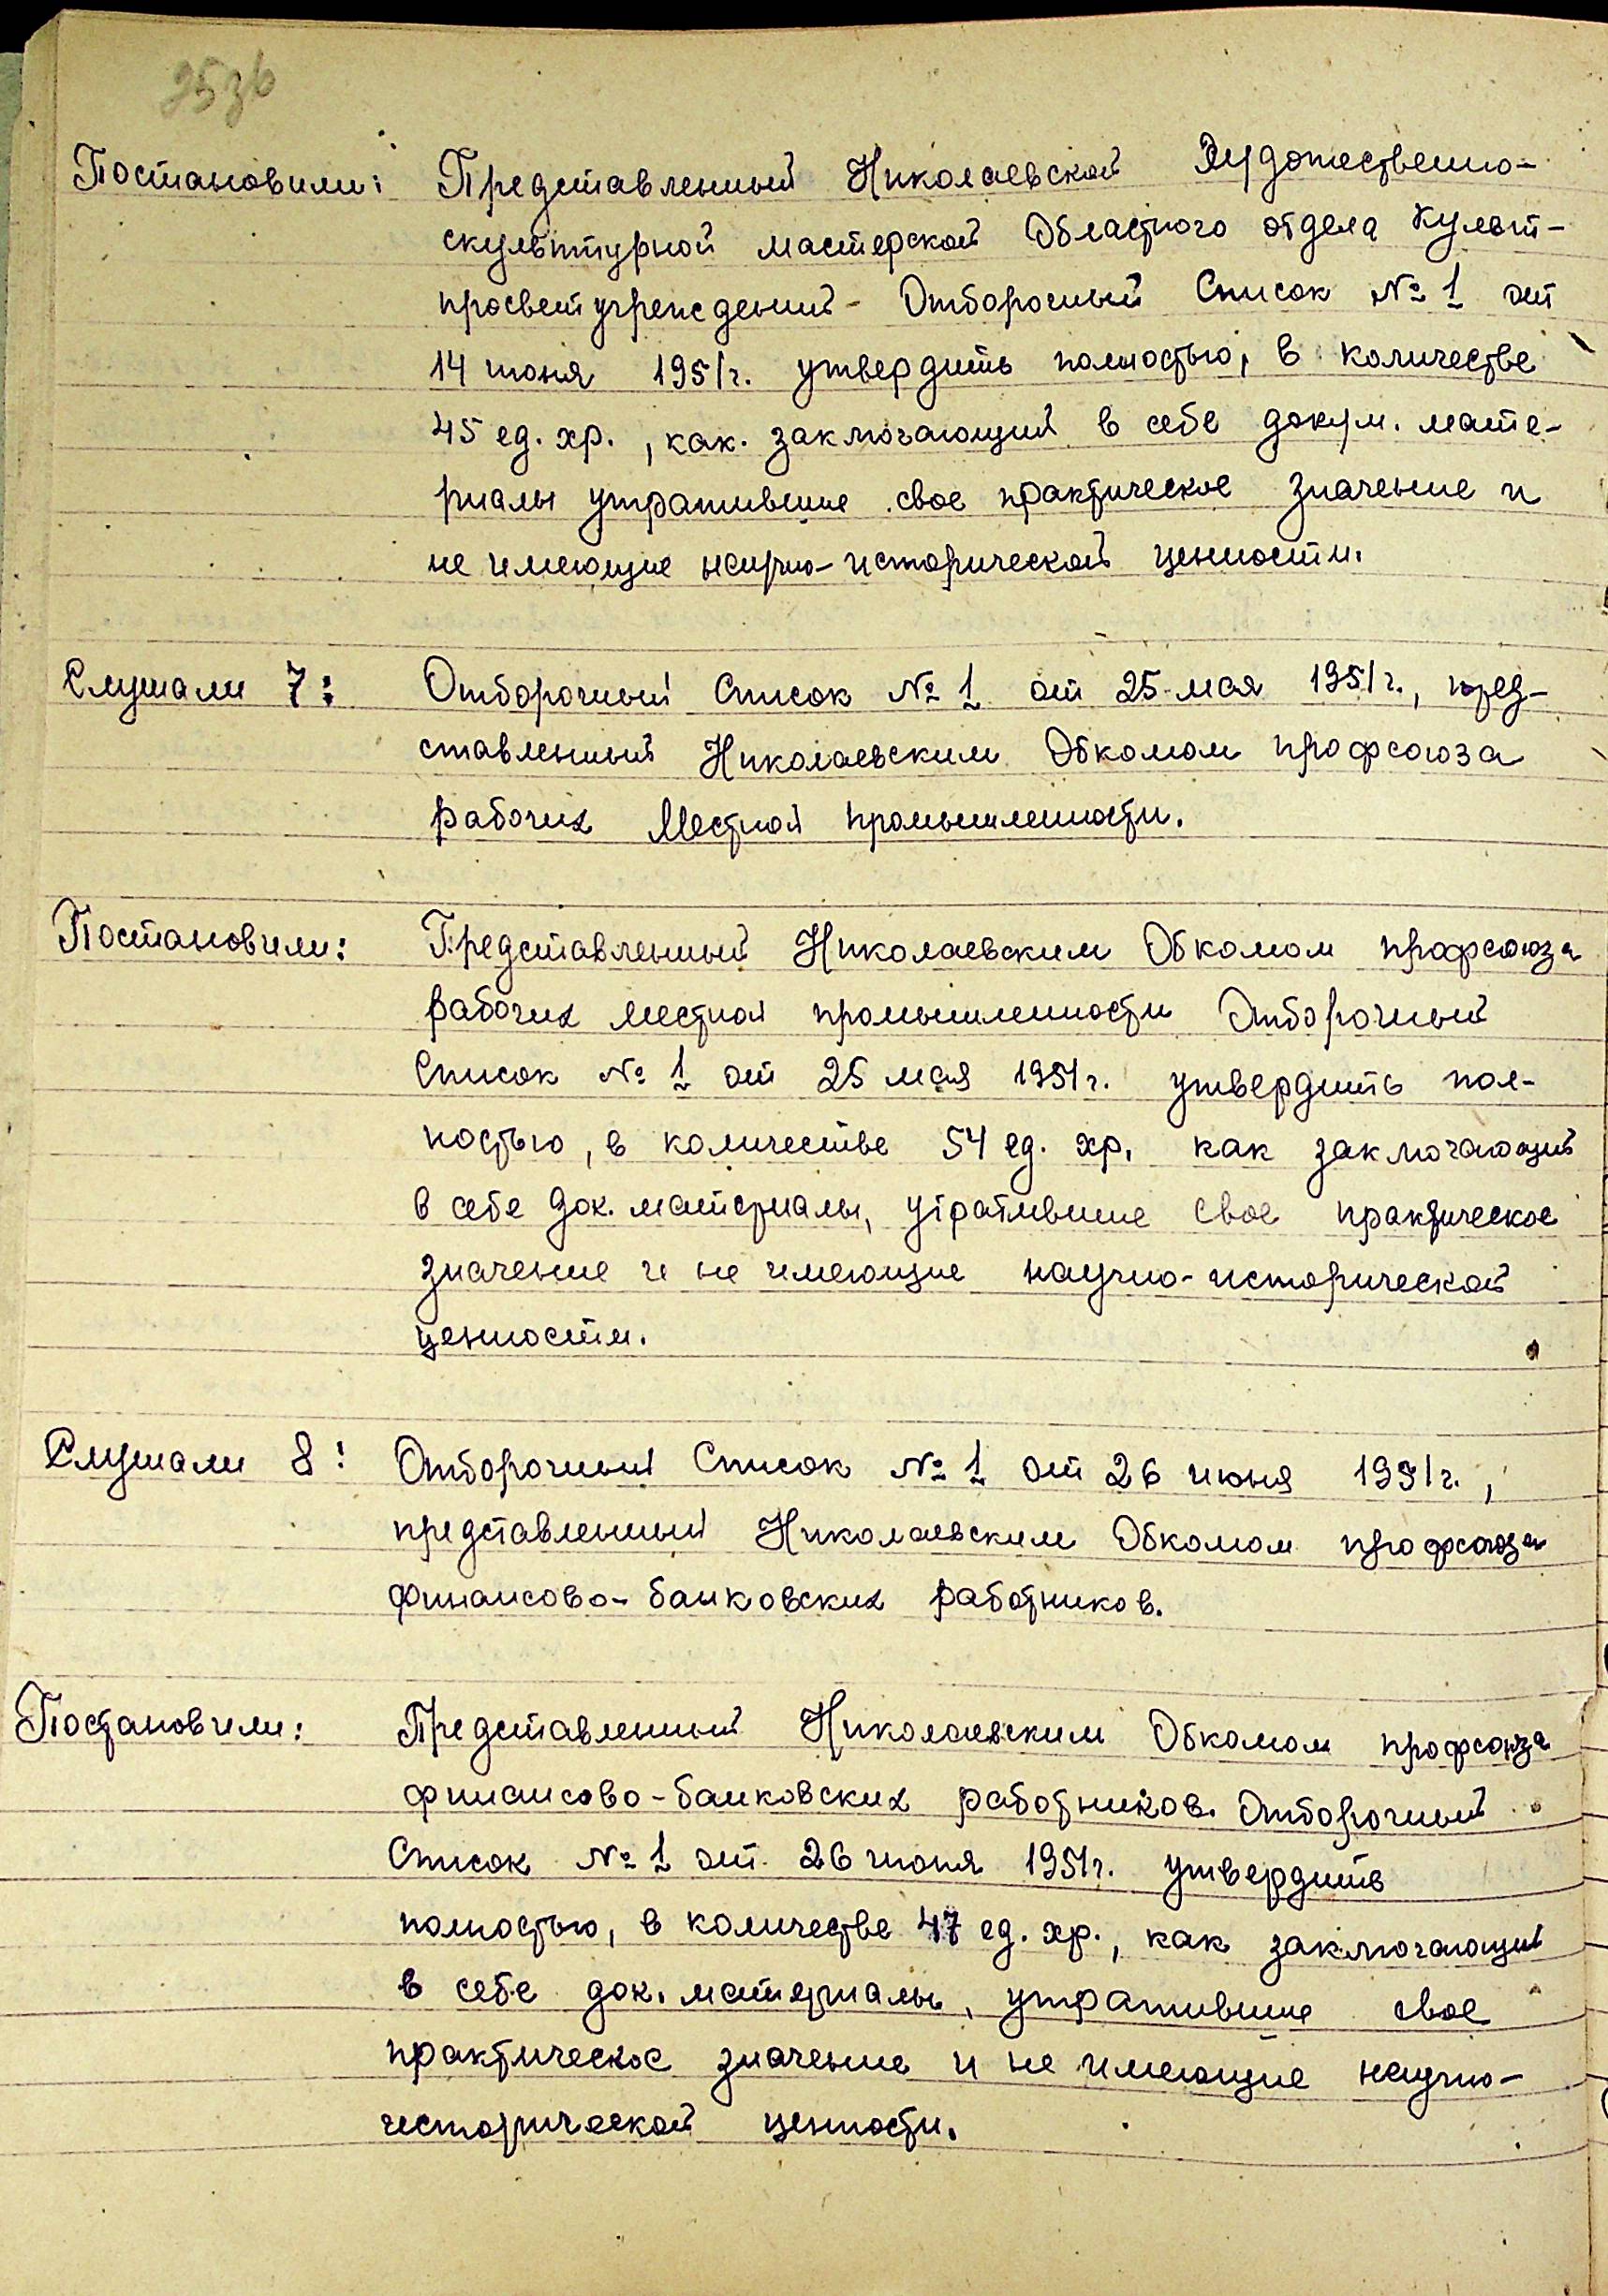 25зв
Постановили: Представленный Николаевской Художественно-
скульптурной мастерской Областного отдела Культ-
просветучреждений - Отборочный Список № 1 от
14 июня 1951г. утвердить полностью, в количестве
45 ед. хр., как. заключающий в себе докум. мате-
риалы утратившие свое практическое значение и
не имеющие научно-исторической ценности.
Слушали 7: Отборочный Список № 1 от 25 мая 1951г., пред-
ставленный Николаевским Обкомом профсоюза
рабочих Местной промышленности.
Постановили: Представленный Николаевским Обкомом профсоюза
рабочих местной промышленности Отборочный
Список № 1 от 25 мая 1951г. утвердить пол-
ностью, в количестве 54 ед. хр. как заключающий
в себе док. материалы, утратившие свое практическое
значение и не имеющие научно-исторической
ценности.
Слушали 8: Отборочный Список № 1 от 26 июня 1951г.,
представленный Николаевским Обкомом профсоюза
финансово-банковских работников.
Постановили: Представленный Николаевским Обкомом профсоюза
финансово-банковских работников. Отборочный
Список № 1 от 26 июня 1951г. утвердить
полностью, в количестве 47 ед. хр., как заключающий
в себе док. материалы, утратившие свое
практическое значение и не имеющие научно-
исторической ценности.